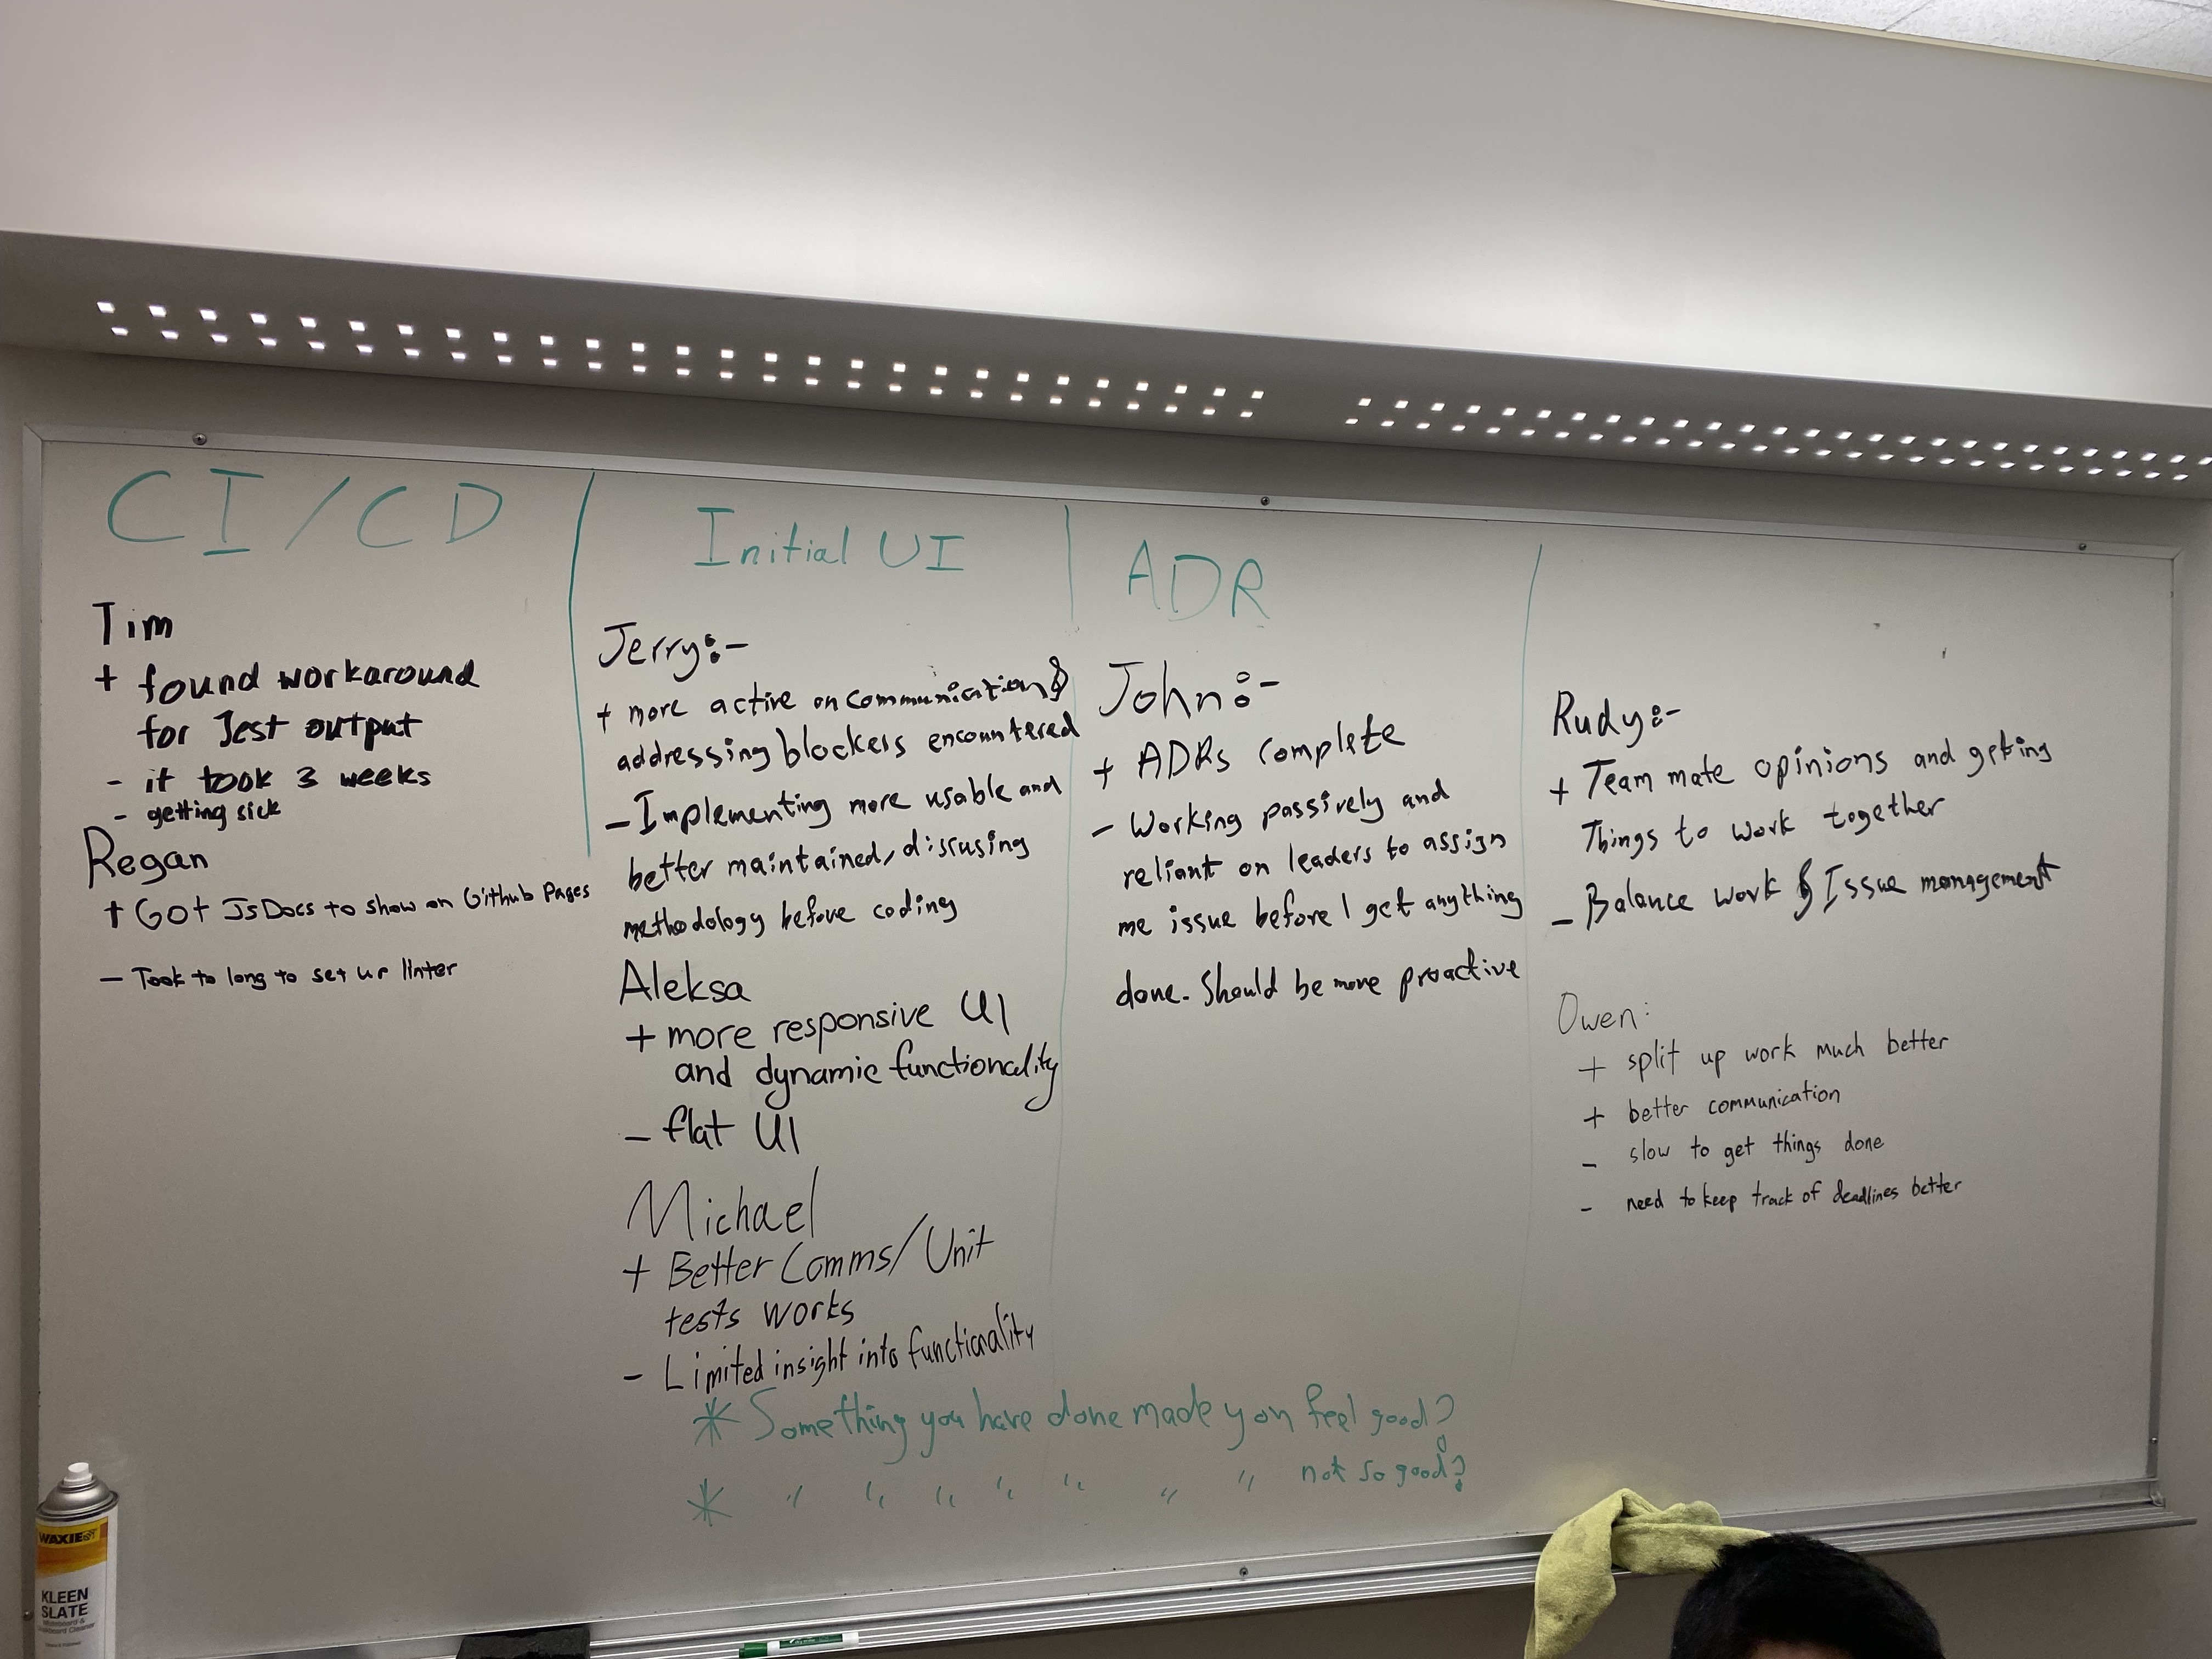 CI/CD
Tim
+ found workaround
for Jest output
- it took 3 weeks
- getting sick
Regan
+ Got JsDocs to show on Github Pages
- Took to long to set up linter
Initial UI
Jerry:-
+ more active on communication &
addressing blockers encountered
- Implementing more usable and
better maintained, disscusing
methodology before coding
Aleksa
+ more responsive UI
and dynamic functionality
- flat UI
Michael
+ Better Comms/Unit
tests works
- Limited insight into functionality
ADR
John:-
+ ADRs complete
- Working passively and
reliant on leaders to assign
me issue before I get anything
done. Should be more proactive
Rudy:-
+ Team mate opinions and getting
Things to work together
- Balance work & Issue management
Owen:
+ split up work much better
+ better communication
- slow to get things done
- need to keep track of deadlines better
* Something you have done made you feel good?
* " " " " " " " not so good?
WAXIE
KLEEN
SLATE